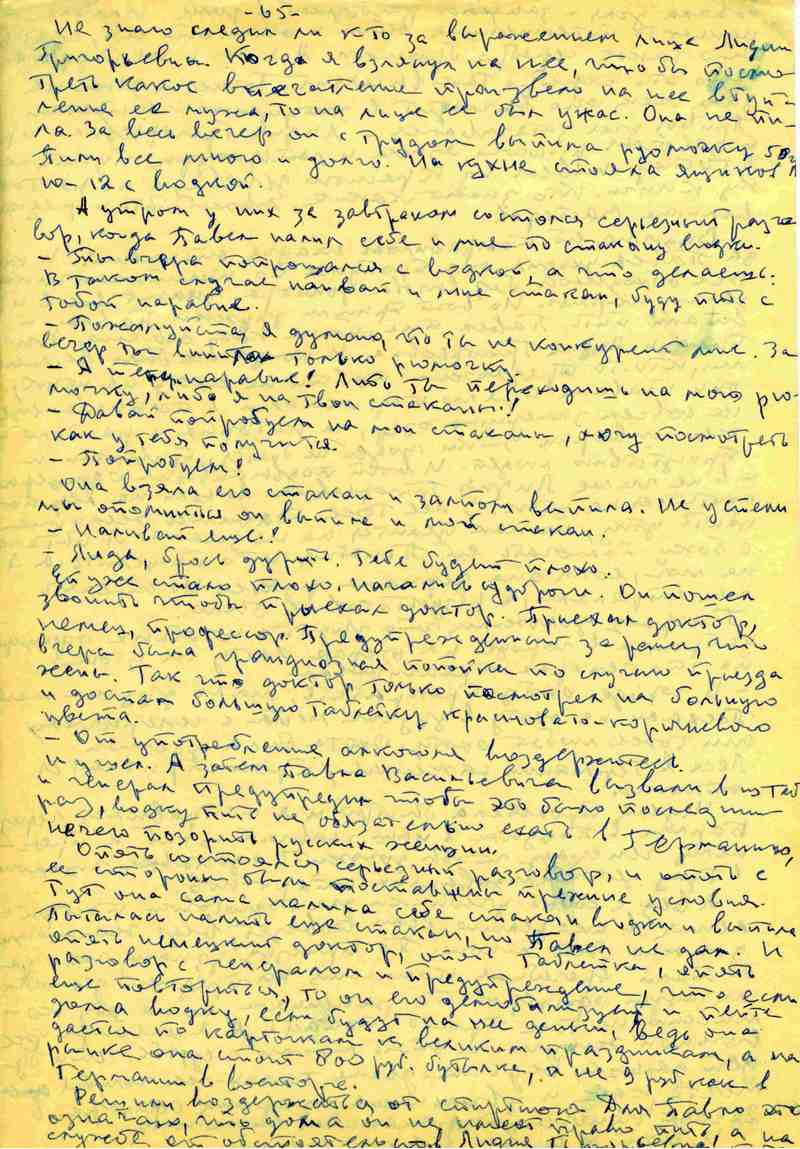 -65-
Не знаю следил ли кто за выражением лица Лидии
Григорьевны. Когда я взглянул на нее, чтобы посмо
треть какое впечатление произвело на нее вступ-
ление ее мужа, то на лице ее был ужас. Она не пи-
ла. За весь вечер он с трудом выпила рюмочку 50г
Пили все много и долго. На кухне стояла ящиков
10-12 с водкой.
А утром у них за завтраком состоялся серьезный разго
вор, когда Павел налил себе и мне по стакану водки.
- Ты вчера попрощался с водкой, а что делаешь.
В таком случае наливай и мне стакан, буду пить с
тобой наравне.
- Пожалуйста, я думаю, что ты не конкурент мне. За
вечер ты выпила только рюмочку.
- Я теперь наравне! Либо ты переходишь на мою рю-
мочку, либо я на твои стаканы!
- Давай попробуем на мои стаканы, хочу посмотреть
как у тебя получится.
- Попробуем!
Она взяла его стакан и залпом выпила. Не успели
мы опомниться он выпила и мой стакан.
- Наливай еще!
- Лида, брось дурить. Тебе будет плохо.
Ей уже стало плохо. Начались судороги. Он пошел
звонить чтобы приехал доктор. Приехал доктор,
немец, профессор. Предупрежденный заранее, что
вчера была грандиозная попойка по случаю приезда
жены. Так что доктор только посмотрел на больную
и достал большую таблетку красновато-коричневого
цвета.
- От употребления алкоголя воздержитесь.
И ушел. А затем Павла Васильевича вызвали в штаб
и генерал предупредил чтобы это было последний
раз, водку пить не обязательно ехать в Германию,
нечего позорить русских женщин.
Опять состоялся серьезный разговор, и опять с
ее стороны были поставлены прежние условия.
Тут она сама налила себе стакан водки и выпила
Пыталась налить еще стакан, но Павел не дал. И
опять немецкий доктор, опять таблетка, опять
разговор с генералом и предупреждение, что если
еще повторится, то он его демобилизует и пейте
дома водку, если будут на нее деньги. Ведь она
дается по карточкам к великим праздникам, а на
рынке она стоит 800 руб. бутылка, а не 9 руб как в
Германии, в военторге.
Решили воздержаться от спиртного. Для Павла это
означало, что дома он не имеет право пить, а на
службе от обстоятельств. Лидия Григорьевна